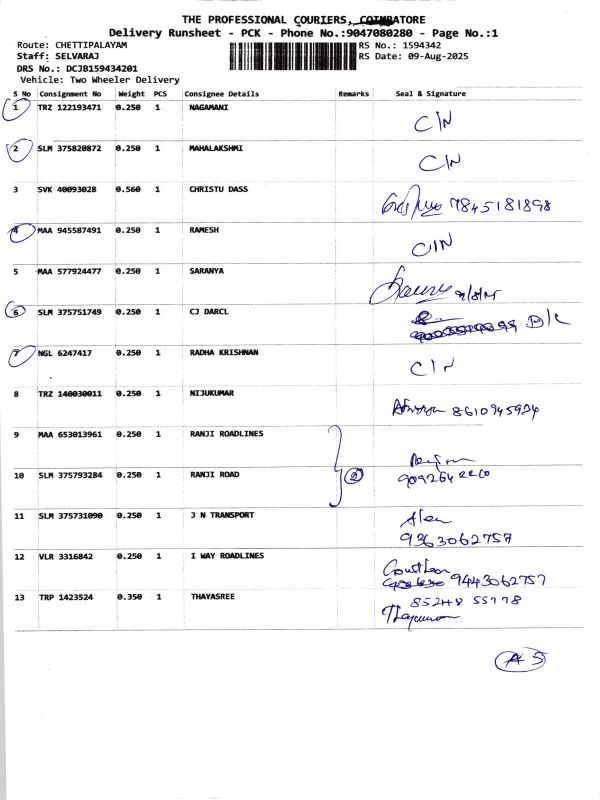 THE PROFESSIONAL COURIERS, COIMBATORE
Delivery Runsheet - PCK - Phone No.:9047080280 - Page No.:1
Route: CHETTIPALAYAM
RS No.: 1594342
Staff: SELVARAJ
RS Date: 09-Aug-2025
DRS No.: DCJB159434201
Vehicle: Two Wheeler Delivery
S No Consignment No Weight PCS Consignee Details Remarks Seal & Signature
1 TRZ 122193471 0.250 1 NAGAMANI C/N
2 SLM 375820872 0.250 1 MAHALAKSHMI C/N
3 SVK 40093028 0.560 1 CHRISTU DASS 7845181898
4 MAA 945587491 0.250 1 RAMESH C/N
5 MAA 577924477 0.250 1 SARANYA 9/8/25
6 SLM 375751749 0.250 1 CJ DARCL D/L
7 NGL 6247417 0.250 1 RADHA KRISHNAN C/N
8 TRZ 140030011 0.250 1 NIJUKUMAR 8610945924
9 MAA 653013961 0.250 1 RANJI ROADLINES
10 SLM 375793284 0.250 1 RANJI ROAD 2
11 SLM 375731090 0.250 1 J N TRANSPORT
9363062757
12 VLR 3316842 0.250 1 I WAY ROADLINES
9443062757
13 TRP 1423524 0.350 1 THAYASREE